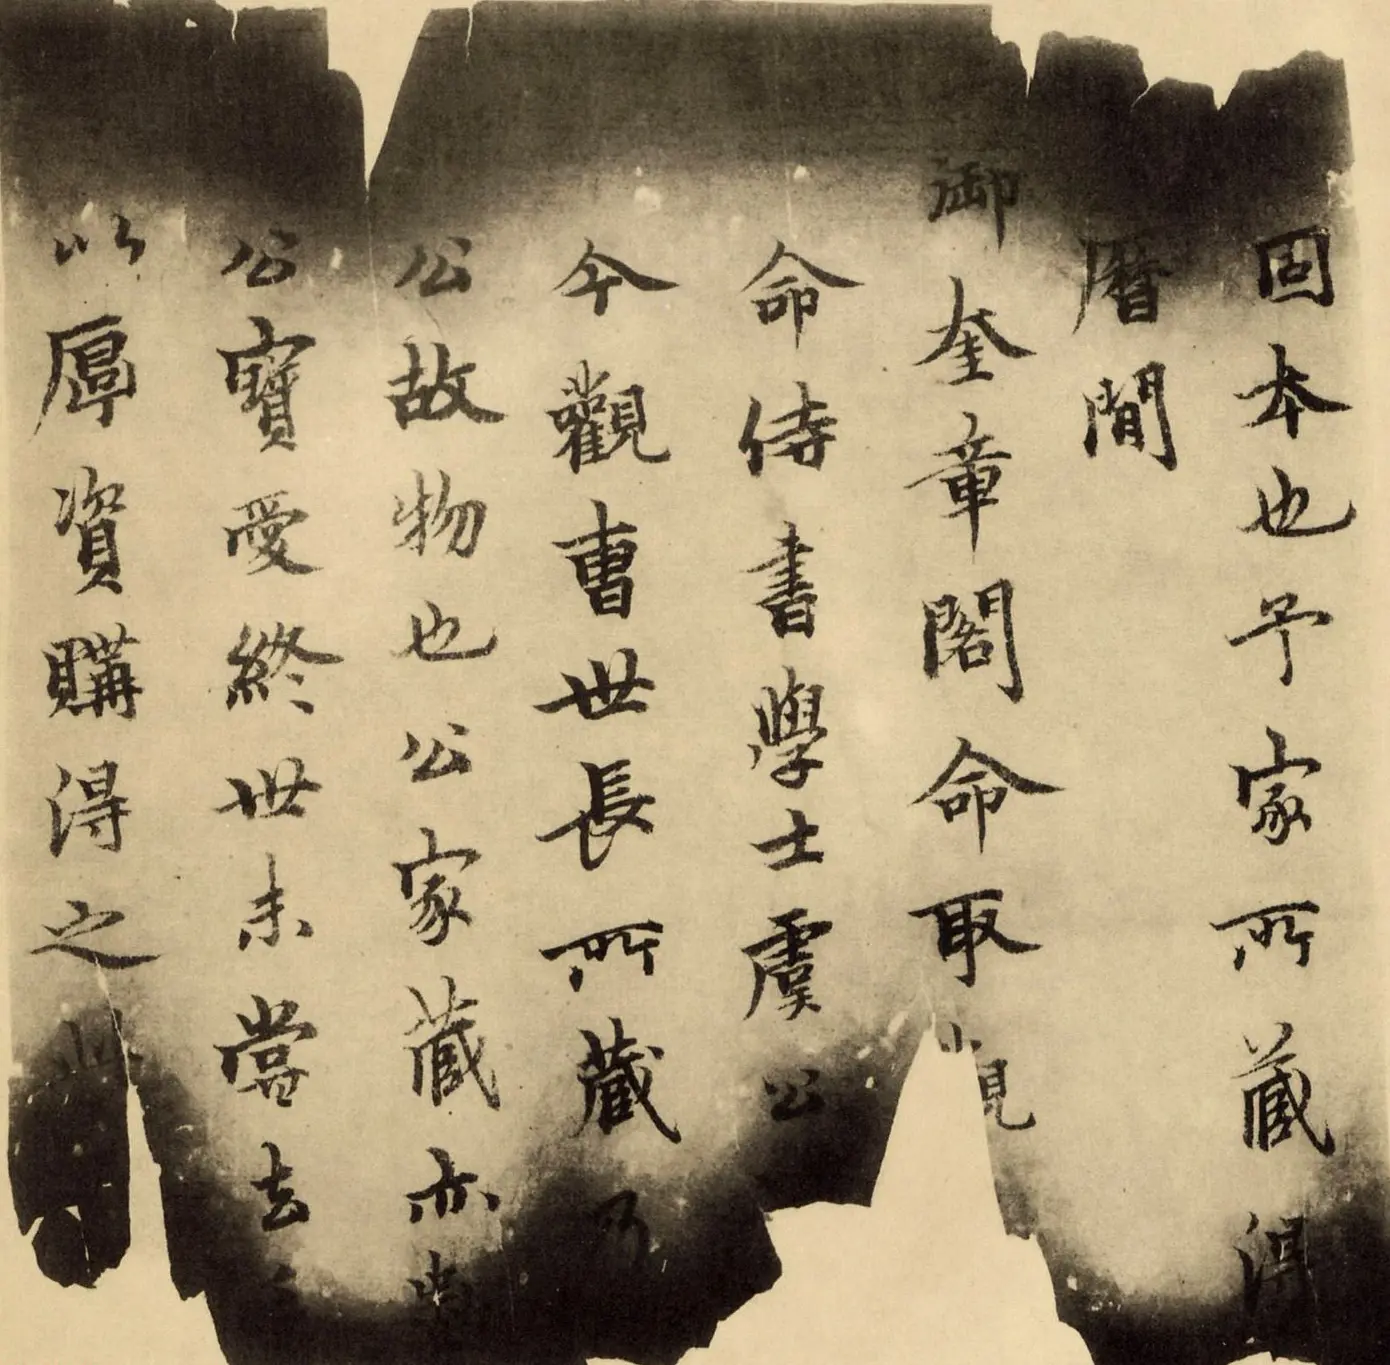 固本也予家所藏得
曆間
御奎章閣命取觀
命侍書學士虞公
今觀曹世長所藏乃
公故物也公家藏亦嘗
公寶愛終世未嘗去
以厚資購得之